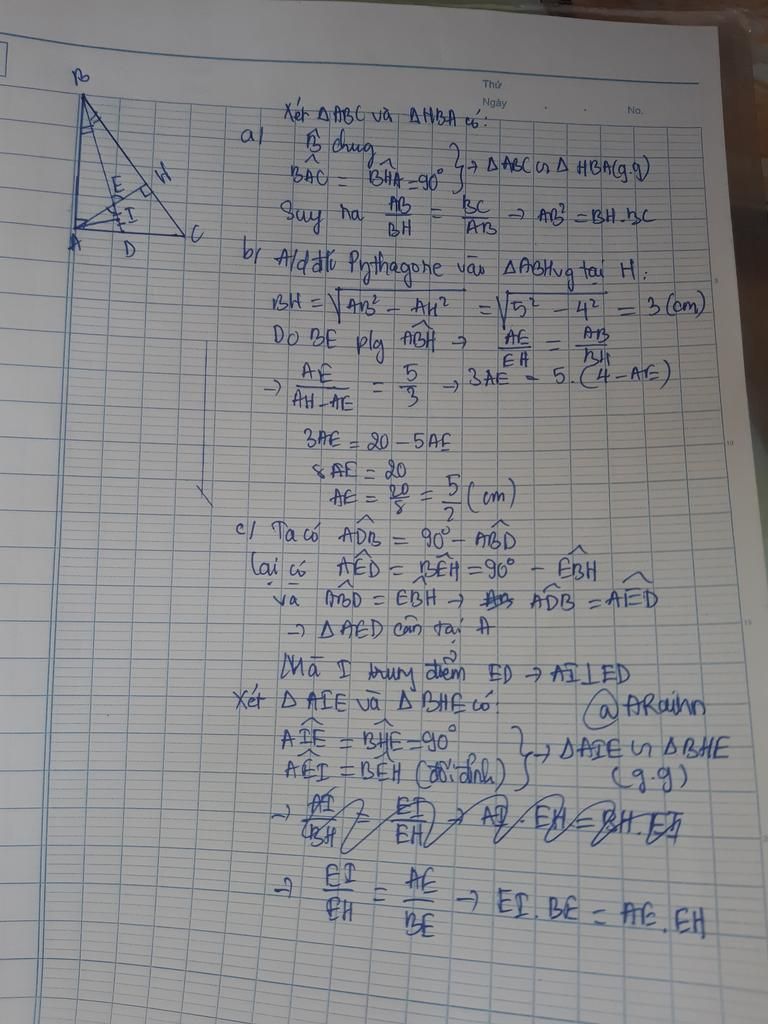 Thứ
Ngày . . No.
B
E
H
I
A
D
C
Xét ΔABC và ΔHBA có:
a/ B̂ chug
BAC^ = BHA^ = 90° } → ΔABC ∽ ΔHBA (g.g)
Suy ra AB/BH = BC/AB → AB² = BH.BC
b/ A/d đlí Pythagore vào ΔABH vg tại H:
BH = √(AB² − AH²) = √(5² − 4²) = 3 (cm)
Do BE plg ABH^ → AE/EH = AB/BH
→ AE/(AH−AE) = 5/3 → 3AE = 5.(4−AE)
3AE = 20 − 5AE
8AE = 20
AE = 20/8 = 5/2 (cm)
c/ Ta có ADB^ = 90° − ABD^
Lại có AED^ = BEH^ = 90° − EBH^
và ABD^ = EBH^ → ADB^ = AED^
→ ΔAED cân tại A
Mà I trung điểm ED → AI⊥ED
Xét ΔAIE và ΔBHE có:
@ARainn
AIE^ = BHE^ = 90°
AEI^ = BEH^ (đối đỉnh) } → ΔAIE ∽ ΔBHE (g.g)
→ AI/BH = EI/EH → AI.EH = BH.EI
→ EI/EH = AE/BE → EI.BE = AE.EH